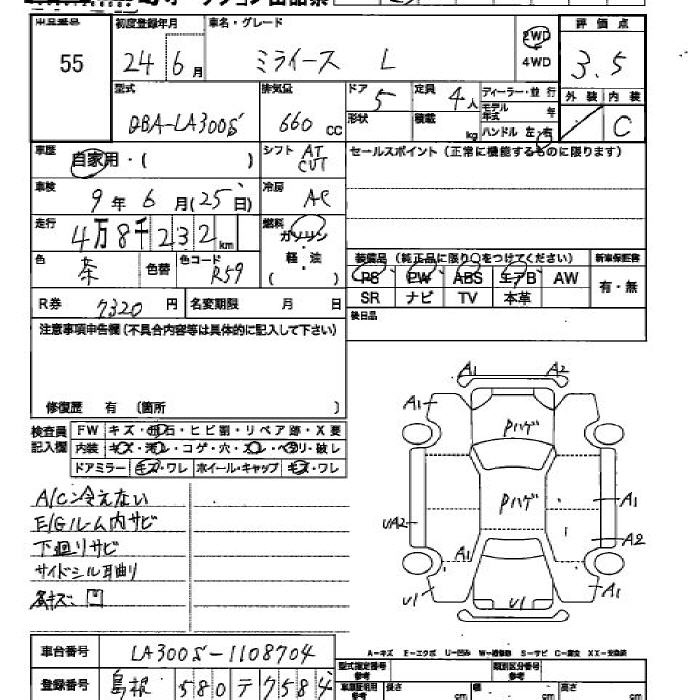 出品番号 初度登録年月 車名・グレード 評価点
55 24 6月 ミライース L 2WD 4WD 3.5
型式 排気量 ドア 定員 ディーラー・並行 外装 内装
DBA-LA300S 660 cc 5 4人 モデル年式 年 C
形状 積載 kg ハンドル 左・右
車歴 自家用・( ) シフト AT CVT セールスポイント(正常に機能するものに限ります)
車検 9年6月(25日) 冷房 AC
走行 4万8千232km 燃料 ガソリン
軽・油
( )
色 茶 色替 色コード R59
装備品(純正品に限り○をつけてください) 新車保証書
PS PW ABS エアB AW 有・無
SR ナビ TV 本革
R券 7320円 名変期限 月 日
後日品
注意事項申告欄(不具合内容等は具体的に記入して下さい)
修復歴 有 〔箇所 〕
検査員記入欄 FW キズ・飛石・ヒビ割・リペア跡・X要
内装 キズ・汚レ・コゲ・穴・スレ・ヘタリ・破レ
ドアミラー キズ・ワレ ホイール・キャップ キズ・ワレ
A/C冷えない
E/Gルーム内サビ
下廻りサビ
サイドシル耳曲り
A1 A2
A1
Pハゲ
Pハゲ
A1
UA2 A2
A1
U1 U1
A-キズ E-エクボ U-凹み W-補修跡 S-サビ C-腐食 XX-交換済
車台番号 LA300S-1108704
登録番号 島根 580 テ 7584
型式指定番号参考 類別区分番号参考
車庫証明用参考 長さ cm 幅 cm 高さ cm